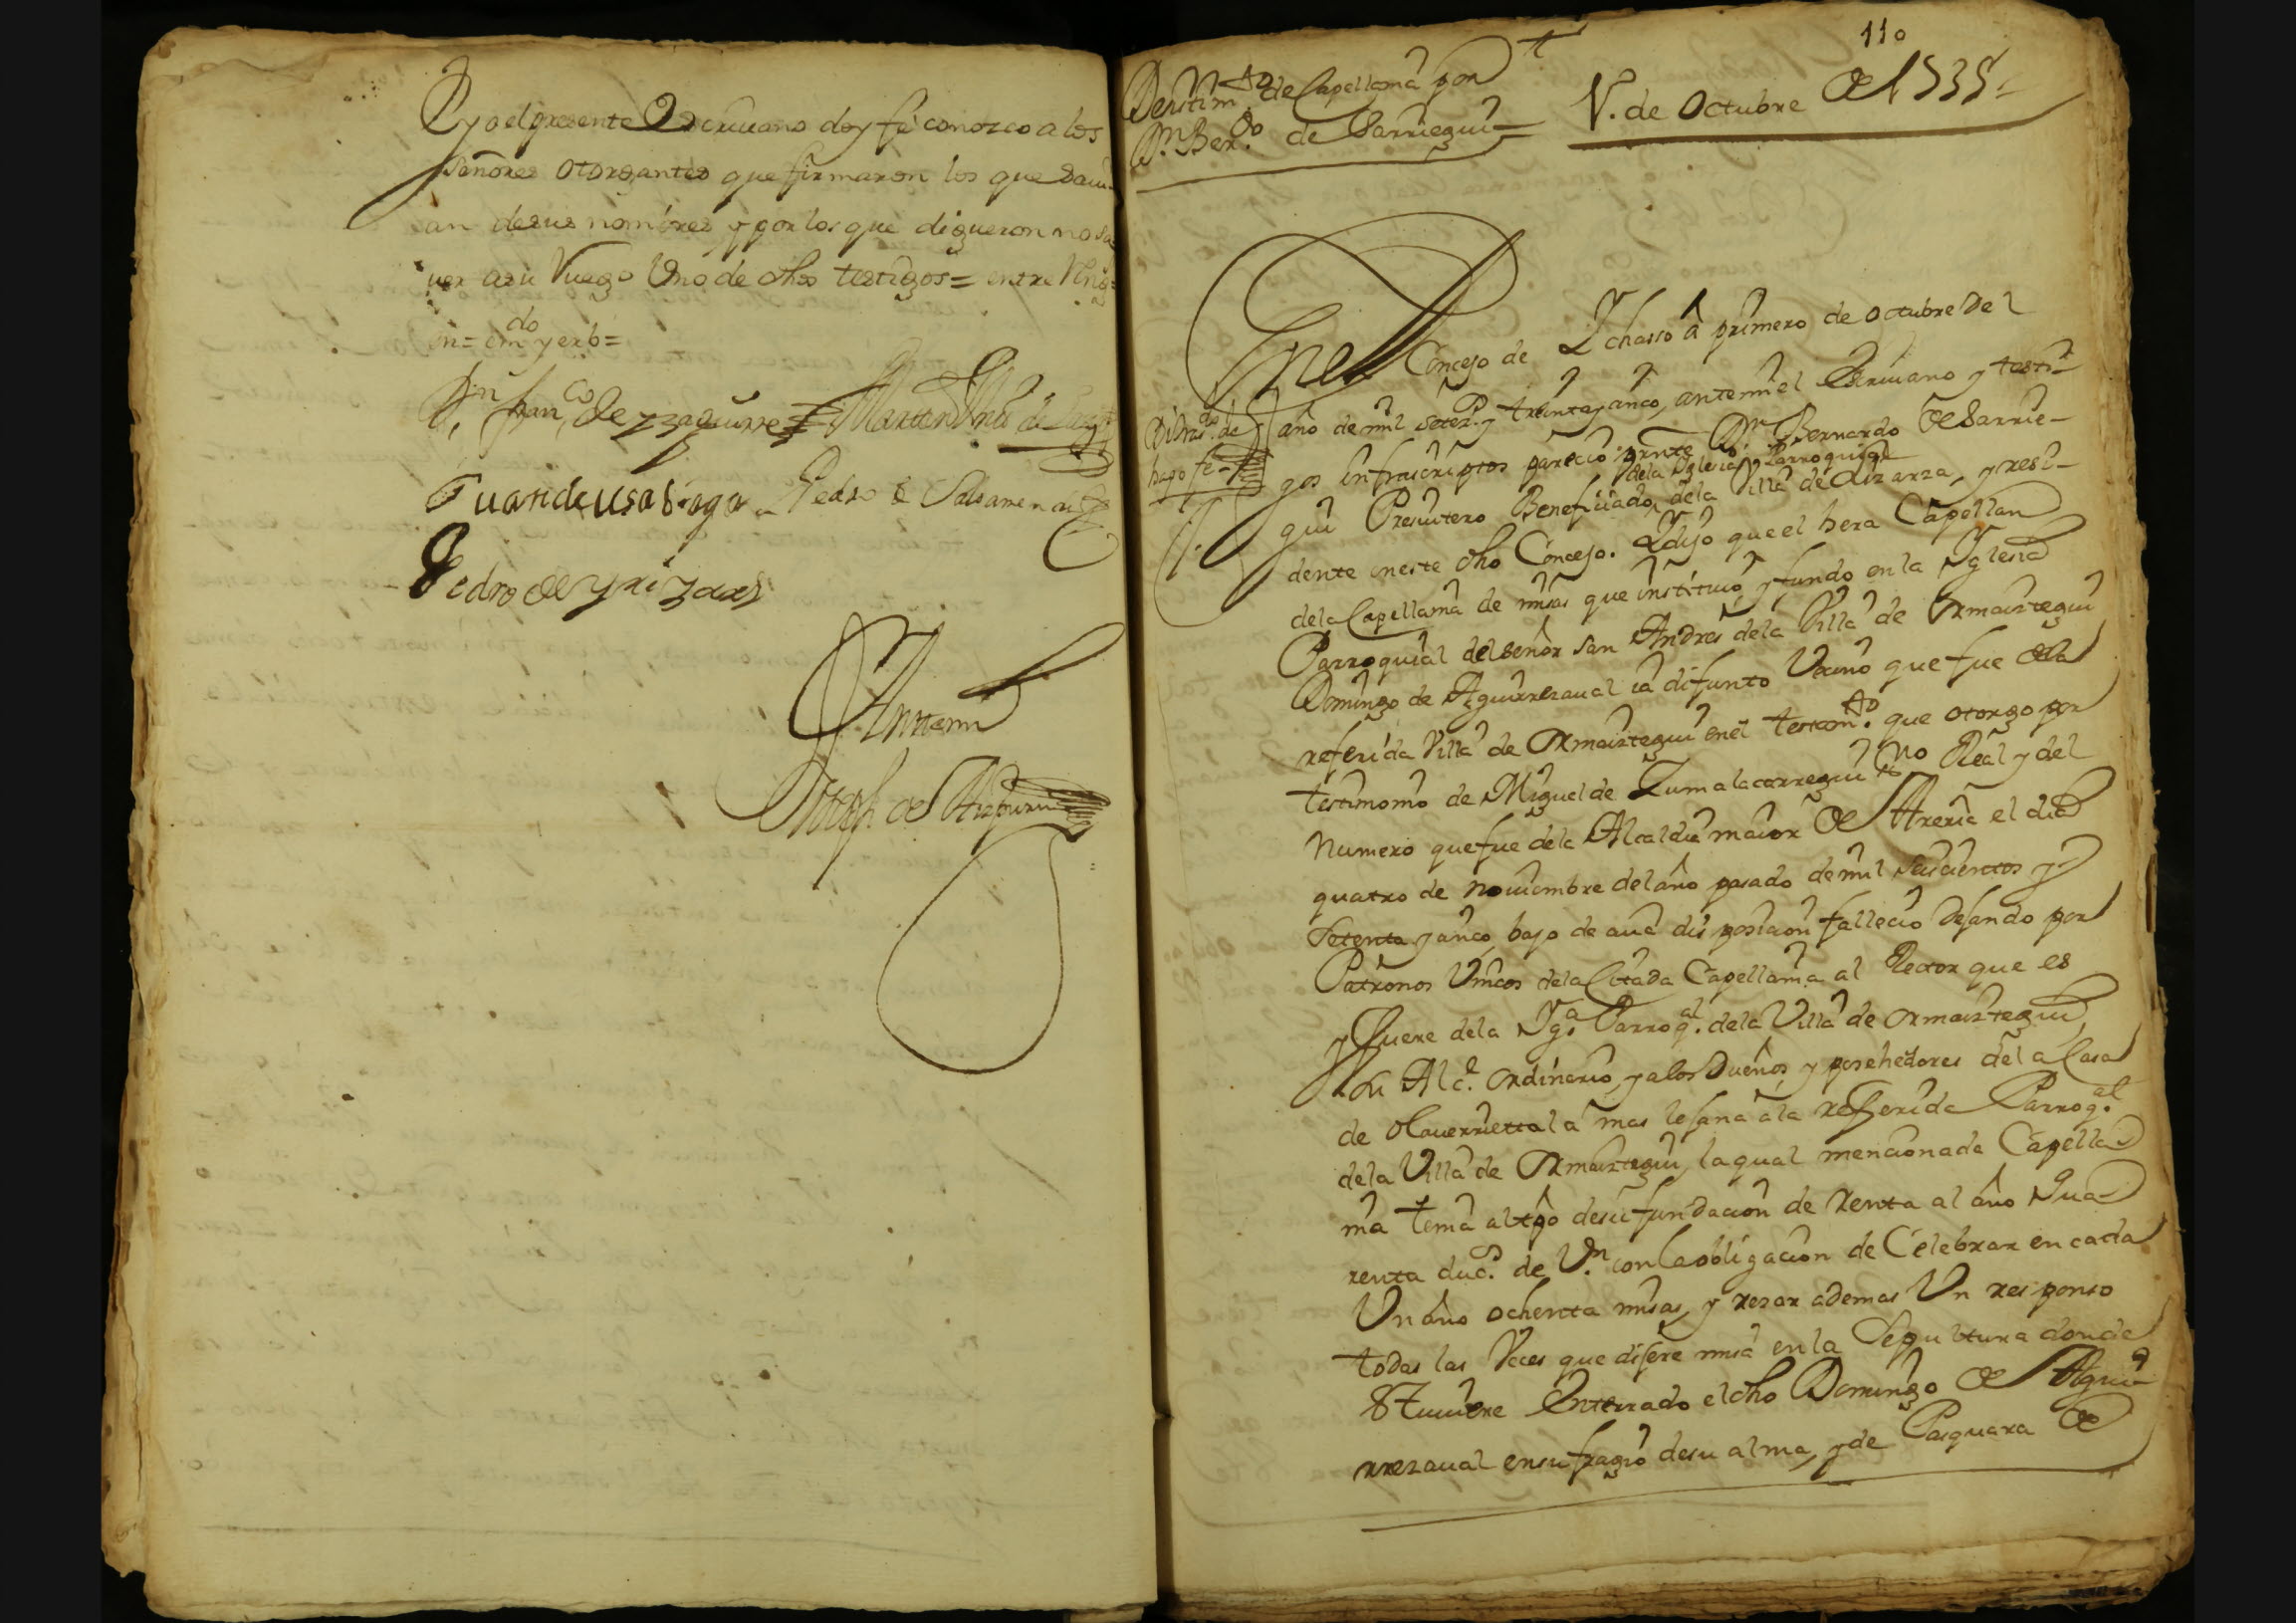 E yo el presente Escriuano doy fe conozco a los
señores otorgantes que firmaron los que sauu-
an desus nomíres y por los que digueron no sa
uer asu Ruego Uno de dhos testigos= entre Rengs=
en= emdo yerb=
Dn. Franco. de Yzaguirre Martin
Juan de Usabiaga Pedro de Salsamendi
Pedro de Yrizar
Antemi
Joseph. de Aizpuru
110
Desistimto de Capellania por
Dn. Berdo. de Sarriegui=
V. de Octubre de 1735-
En el Concejo de Ychasso â primero de octubre Del
año de mil setezs. y treinta y cinco, ante mi el Escriuano y testi-
di tras.do de
hago fe-
gos infrascriptos pareció prnte Dn. Bernardo de Sarrie-
dela Yglesia Parroquial
gui Presuitero Beneficiado, dela Villa de Aizarza, y resi-
dente en este dho Concejo. Y dijo que el hera Capellan
dela Capellania de misas que instituió, y fundo en la Yglesia
Parroquial del señor San Andres dela Villa de Ormaiztegui
Domingo de Aguirrezaual ia difunto Vecino que fue dela
referida Villa de Ormaiztegui en el testamto. que otorgo por
testimonio de Miguel de Zumalacarregui esno Real y del
Numero que fue dela Alcaldia maior de Areria el dia
quatro de nouiembre del año pasado de mil seiscientos y
setenta y cinco, bajo de cuia disposicion fallecio Dejando por
Patronos Vnicos dela Citada Capellania al Rector que es
y fuere dela Yga. Parroql. dela Villa de ormaiztegui,
su Alce. ordinario, y a los Dueños, y posehedores de la Casa
de olauerrietta la mas lejana a la referida Parroql.
dela Villa de Ormaiztegui, la qual mencionada Capella-
nia tenia al tpo desu fundacion de Renta al año Qua-
renta ducs. de Vn. con la obligacion de Celebrar en cada
Un año ochenta misas, y rezar ademas Un responso
todas las Veces que dijere misa en la Sepultura donde
estuuiere Enterrado el dho Domingo de Agui-
rrezaual en sufragio desu alma, y de Pasquara de